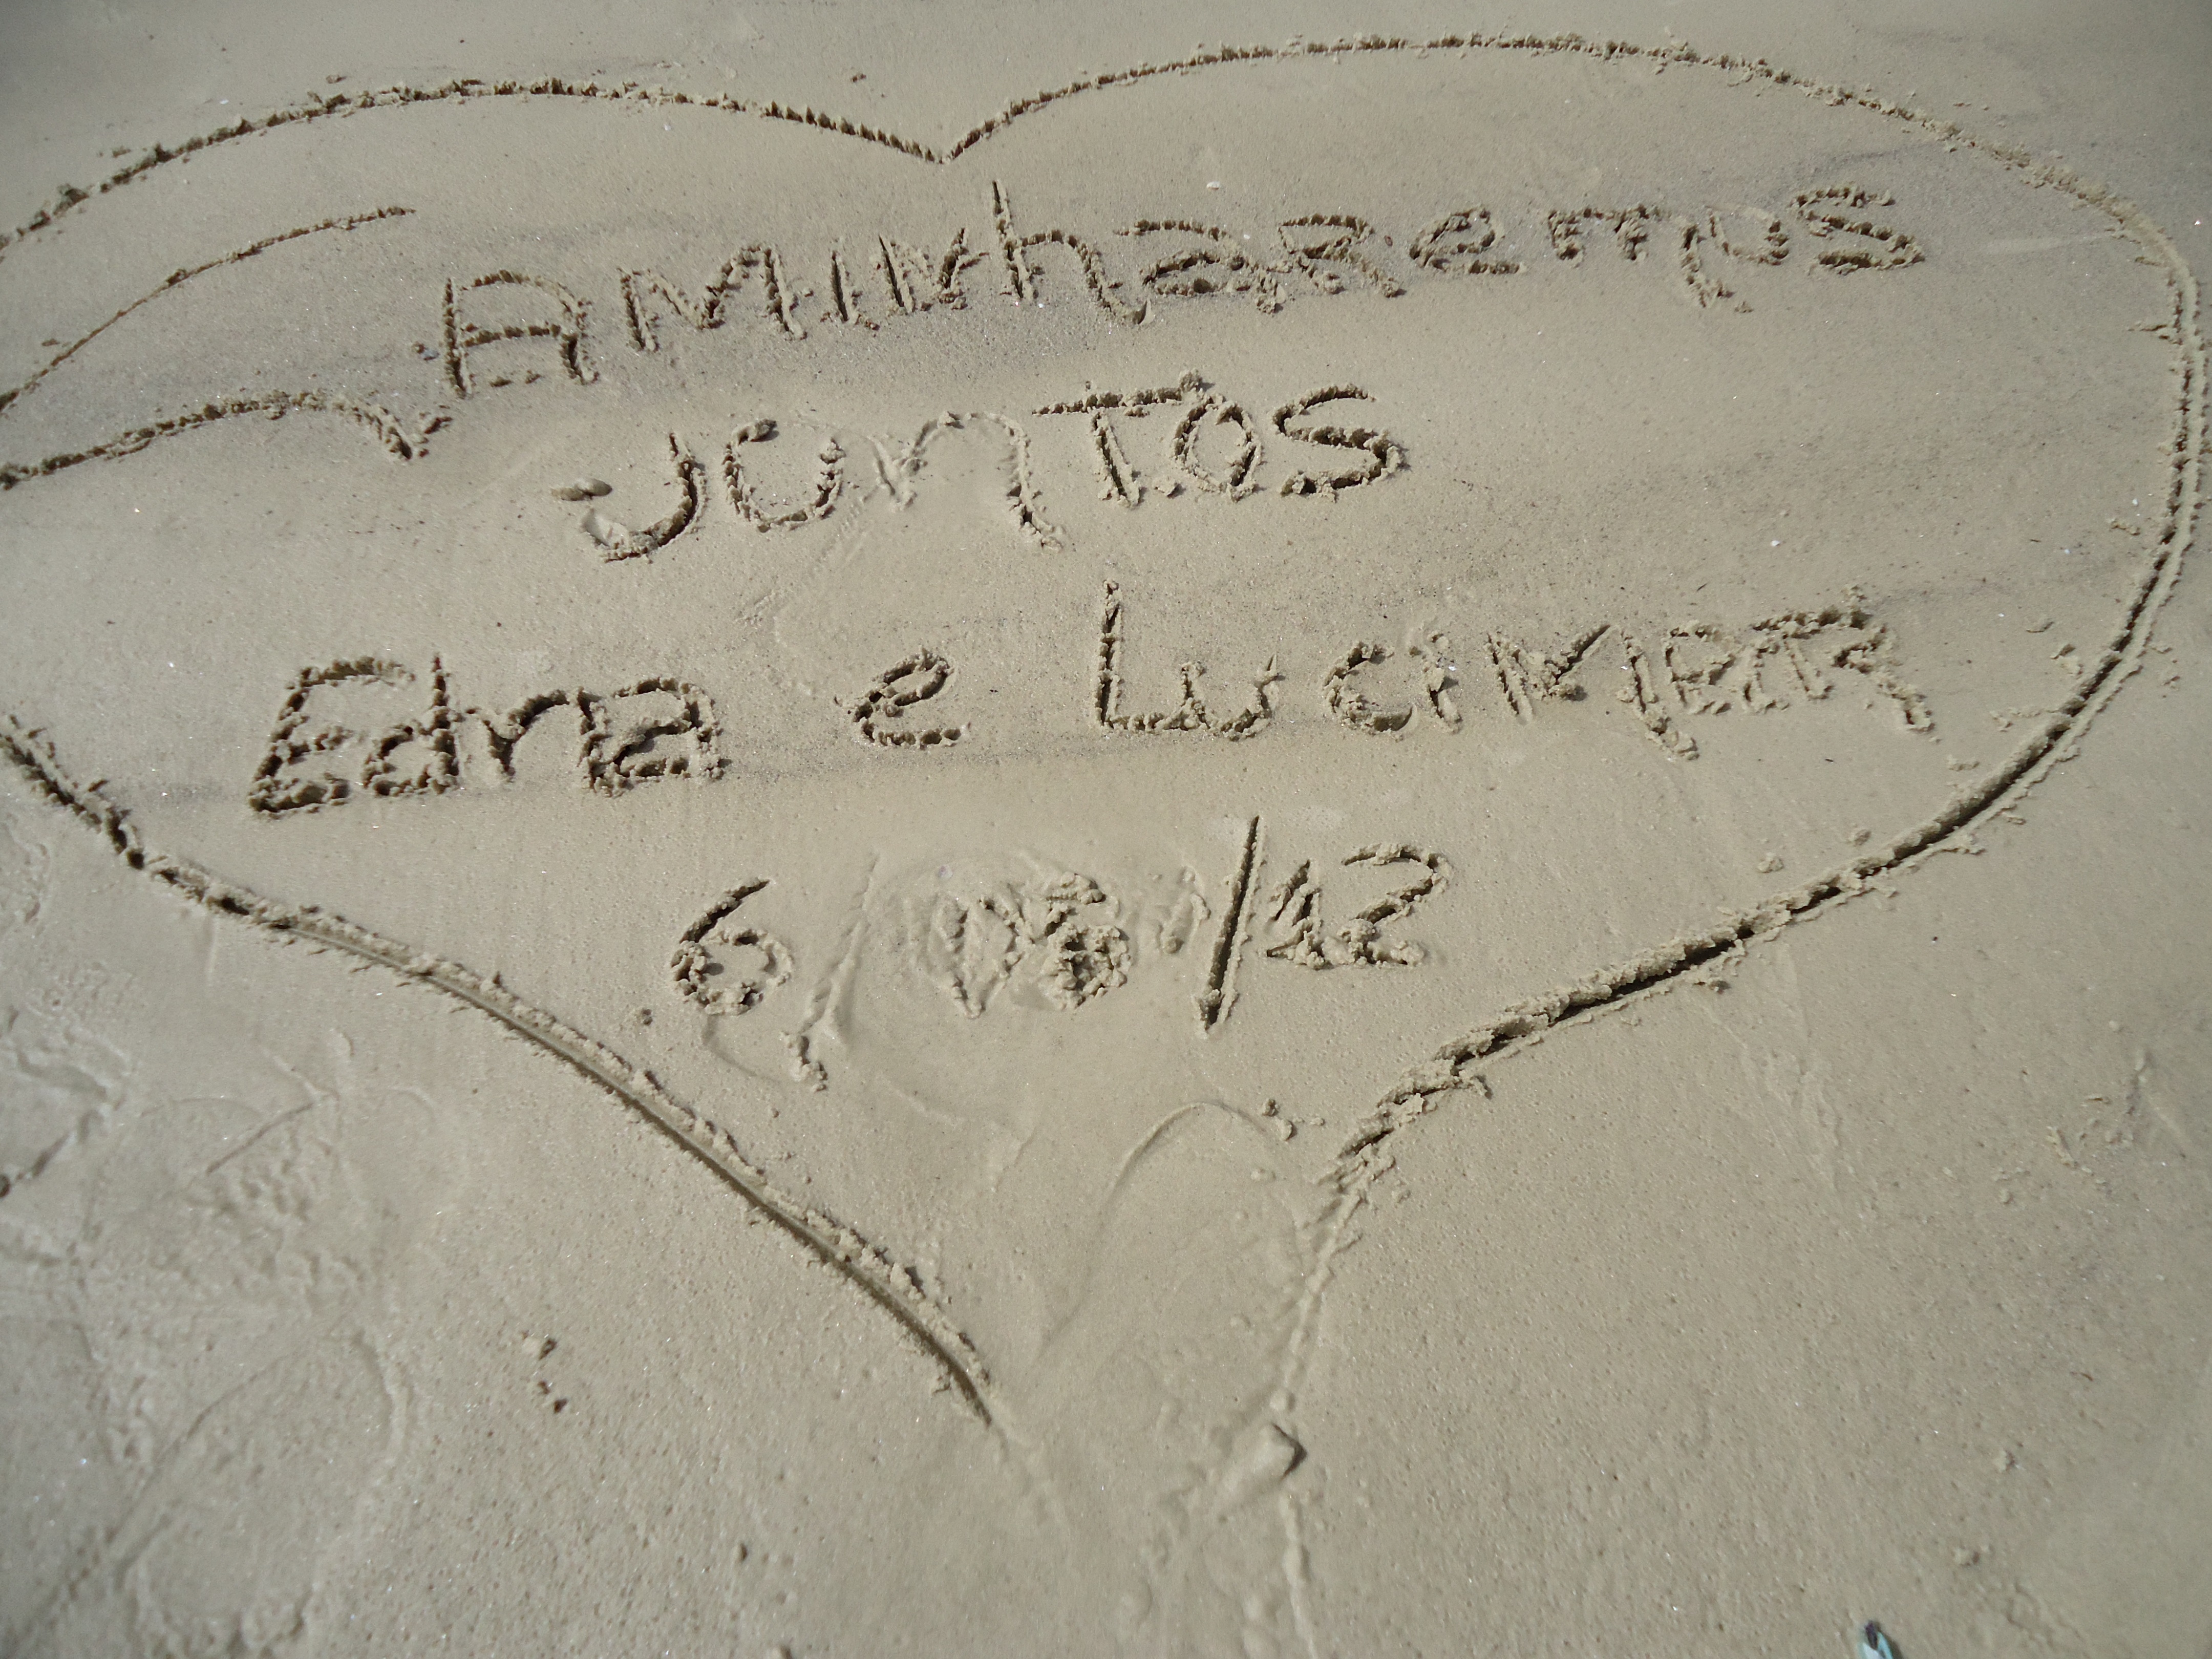 AMINhaRemos
JUNTOS
Edna e LuciMar
6/08/12